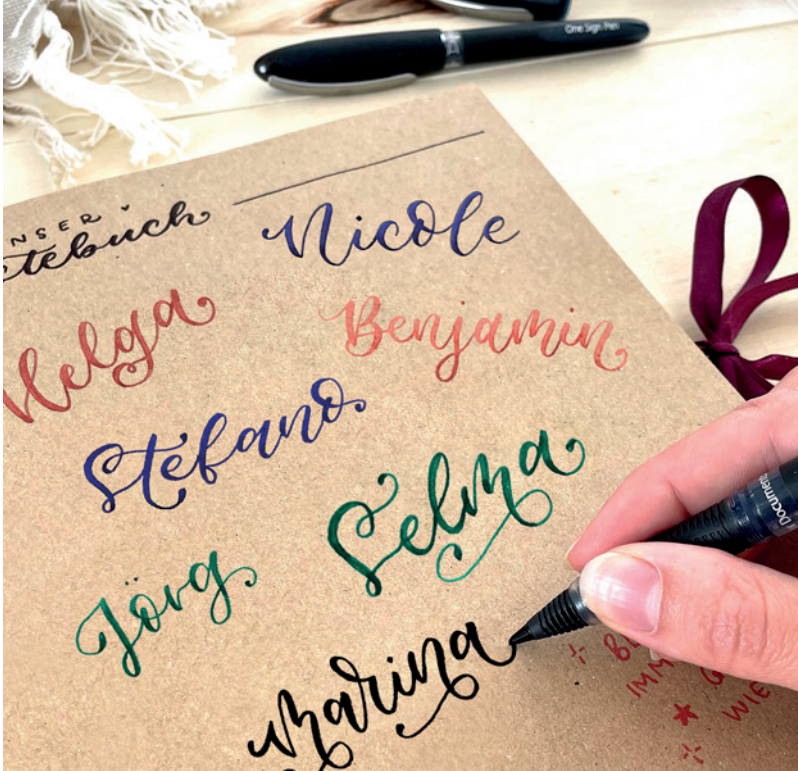 One Sign Pen
NSER
tebuch
Nicole
Helga
Benjamin
Stefano
Selma
Jörg
Marina
Document
IMM
WIE